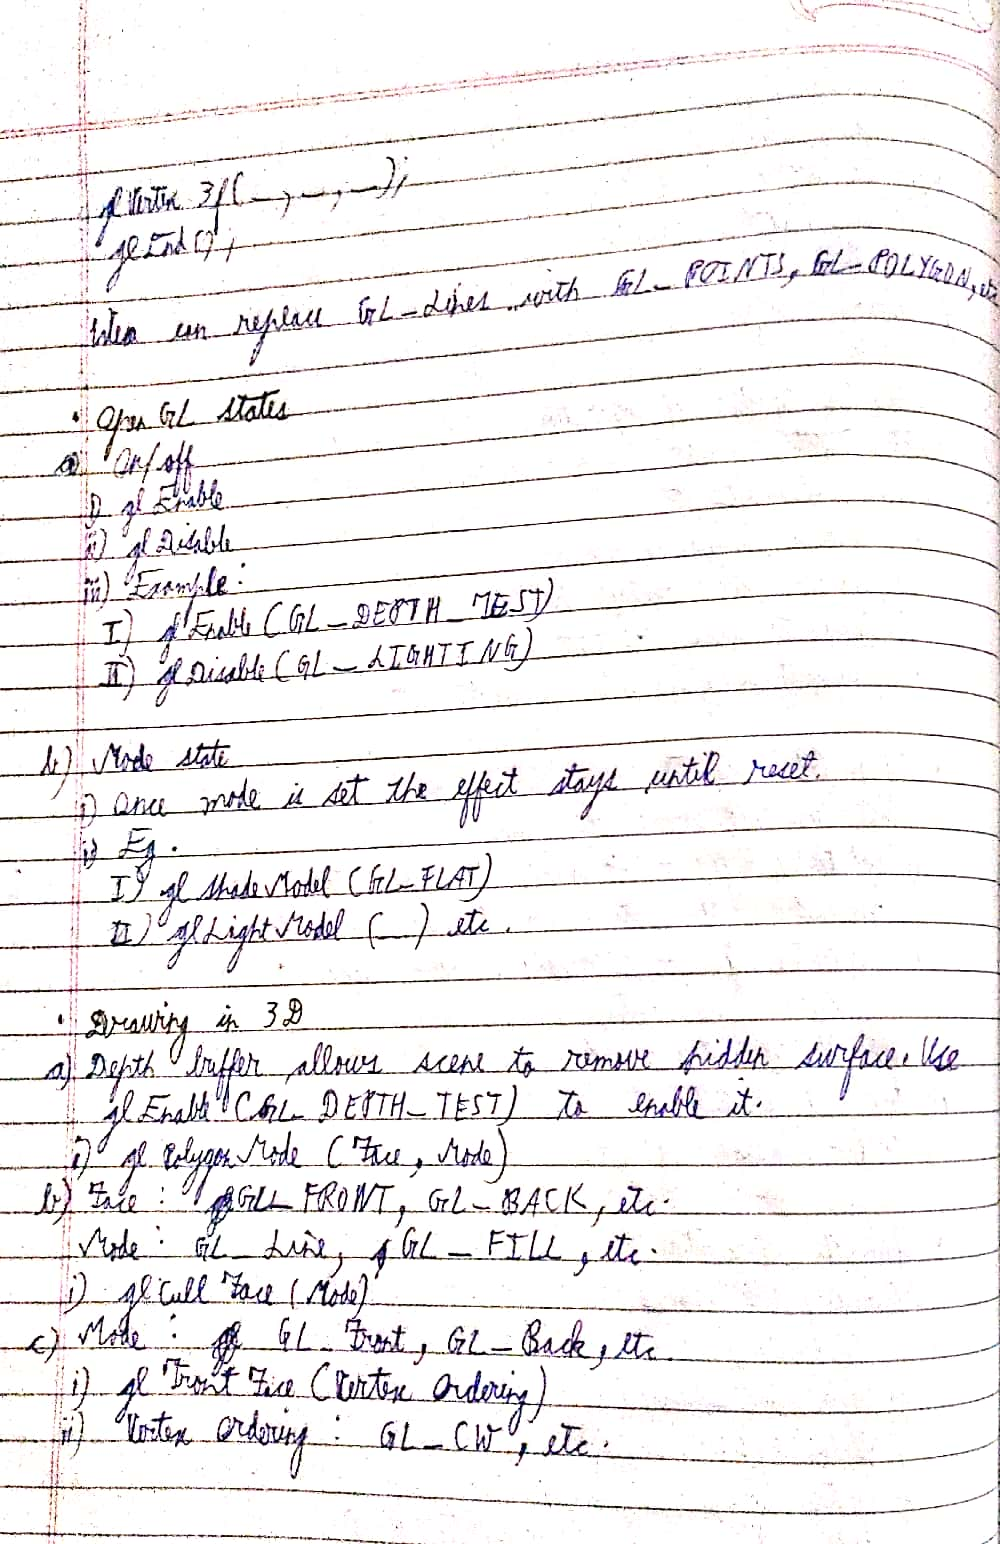 glVertex 3f( _, _, _);
glEnd();
can replace GL_Lines with GL_POINTS, GL_POLYGON, etc
• Open GL states
a) On/off
i) glEnable
ii) glDisable
iii) Example:
I) glEnable (GL_DEPTH_TEST)
II) glDisable (GL_LIGHTING)
b) Mode state
i) Once mode is set the effect stays until reset.
ii) Eg.
I) gl ShadeModel (GL_FLAT)
II) glLightModel (_) etc.
• Drawing in 3D
a) Depth buffer allows scene to remove hidden surface. Use
glEnable (GL_DEPTH_TEST) to enable it.
i) gl Polygon Mode (Face, Mode)
b) Face : GL_FRONT, GL_BACK, etc.
Mode : GL_Line, GL_FILL, etc.
i) glCull Face (Mode)
c) Mode : GL_Front, GL_Back, etc.
i) gl Front Face (Vertex Ordering)
ii) Vertex Ordering : GL_CW, etc.